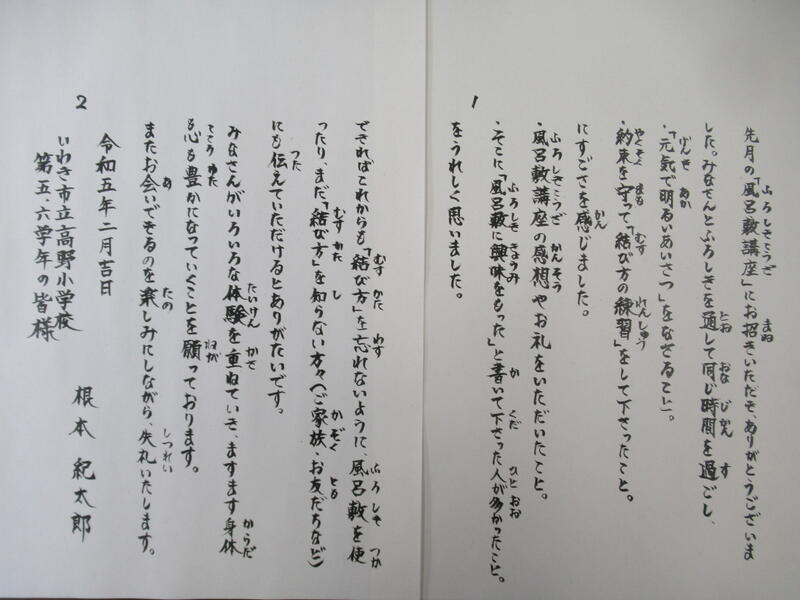 1
先月の「風呂敷講座」にお招きいただき、ありがとうございま
した。みなさんとふろしきを通して同じ時間を過ごし、
・「元気で明るいあいさつ」をなさること。
・約束を守って「結び方の練習」をして下さったこと。
にすごさを感じました。
・風呂敷講座の感想やお礼をいただいたこと。
・そこに「風呂敷に興味をもった」と書いて下さった人が多かったこと。
をうれしく思いました。
2
できればこれからも「結び方」を忘れないように、風呂敷を使
ったり、まだ「結び方」を知らない方々(ご家族・お友だちなど)
にも伝えていただけるとありがたいです。
みなさんがいろいろな体験を重ねていき、ますます身体
も心も豊かになっていくことを願っております。
またお会いできるのを楽しみにしながら、失礼いたします。
令和五年二月吉日
いわき市立高野小学校
第五・六学年の皆様
根本 紀太郎